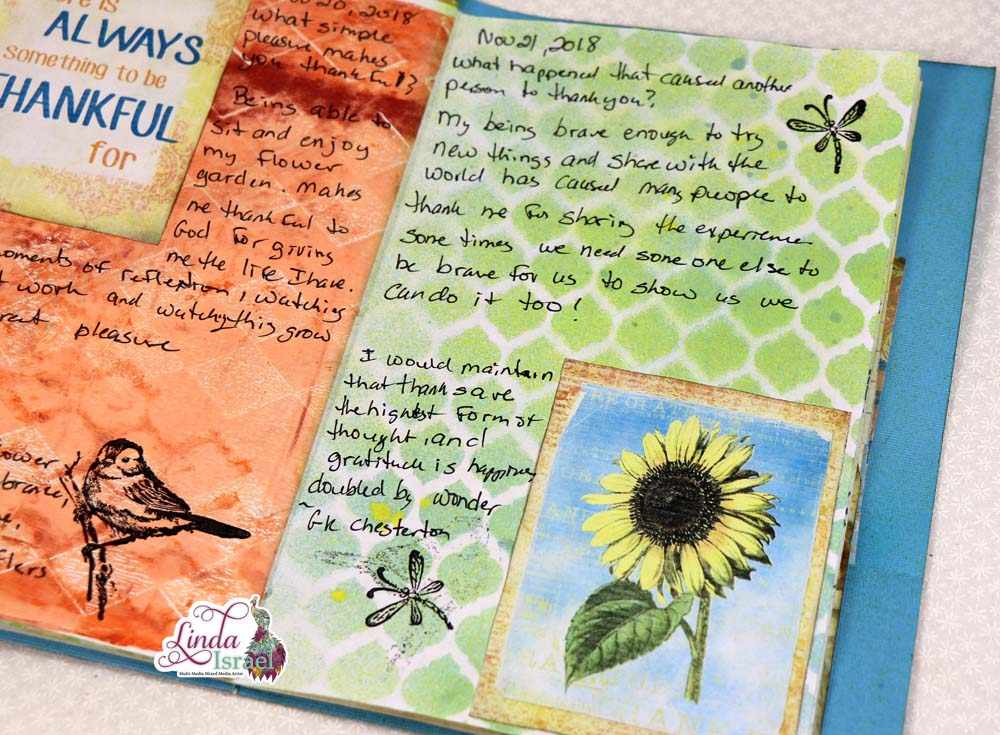 there is
ALWAYS
something to be
THANKFUL
for
Nov 20, 2018
what simple
pleasure makes
you thankful?
Being able to
sit and enjoy
my flower
garden. Makes
me thankful to
God for giving
me the life I have.
moments of reflection, watching
work and watching things grow
great pleasure
flower
Nov 21, 2018
what happened that caused another
person to thank you?
My being brave enough to try
new things and share with the
world has caused many people to
thank me for sharing the experience
some times we need some one else to
be brave for us to show us we
can do it too!
I would maintain
that thanks are
the highest form of
thought, and
gratitude is happiness
doubled by wonder
~GK Chesterton
Linda
Israel
Multi Media Mixed Media Artist